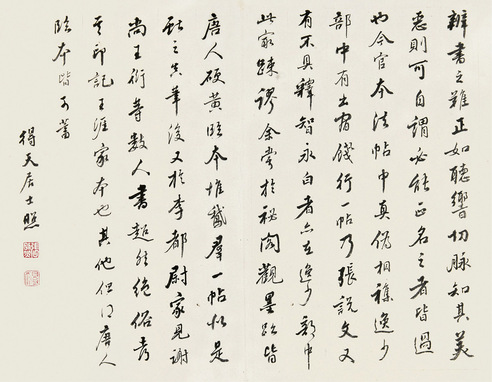 辨書之難正如聽響切脉知其美
惡則可自謂必能正名之者皆過
也今官本法帖中真偽相雜逸少
部中有出宿餞行一帖乃張說文又
有不具釋智永白者亦在逸少部中
此冣踈謬余嘗於秘閣觀墨跡皆
唐人硬黃臨本惟鵞群一帖似是
獻之真筆後又於李都尉家見謝
尚王衍等數人書超然絕俗考
其印記王涯家本也其他但得唐人
臨本皆可蓄
得天居士照